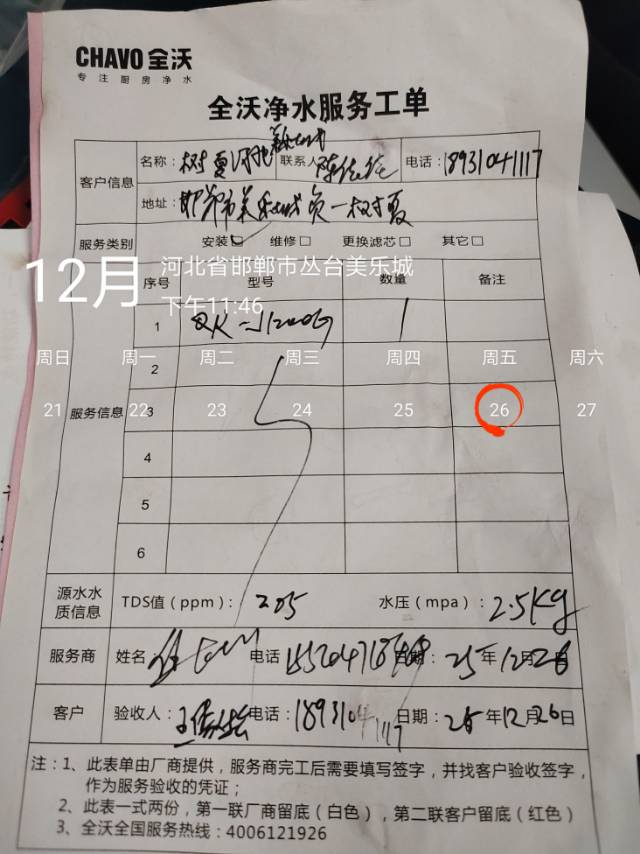 CHAVO 全沃
专注厨房净水
全沃净水服务工单
客户信息
名称：树夏 美乐城 联系人 电话：18931041117
地址：邯郸市美乐城负一树夏
服务类别 安装☑ 维修□ 更换滤芯□ 其它□
12月 河北省邯郸市丛台美乐城
下午11:46
序号 型号 数量 备注
1 1200G 1
2
周日 周一 周二 周三 周四 周五 周六
服务信息 3
21 22 23 24 25 26 27
4
5
6
源水水质信息 TDS值（ppm）：205 水压（mpa）：2.5Kg
服务商 姓名 电话 日期：25年12月26
客户 验收人： 电话：18931041117 日期：25年12月26日
注：1、此表单由厂商提供，服务商完工后需要填写签字，并找客户验收签字，
作为服务验收的凭证；
2、此表一式两份，第一联厂商留底（白色），第二联客户留底（红色）
3、全沃全国服务热线：4006121926